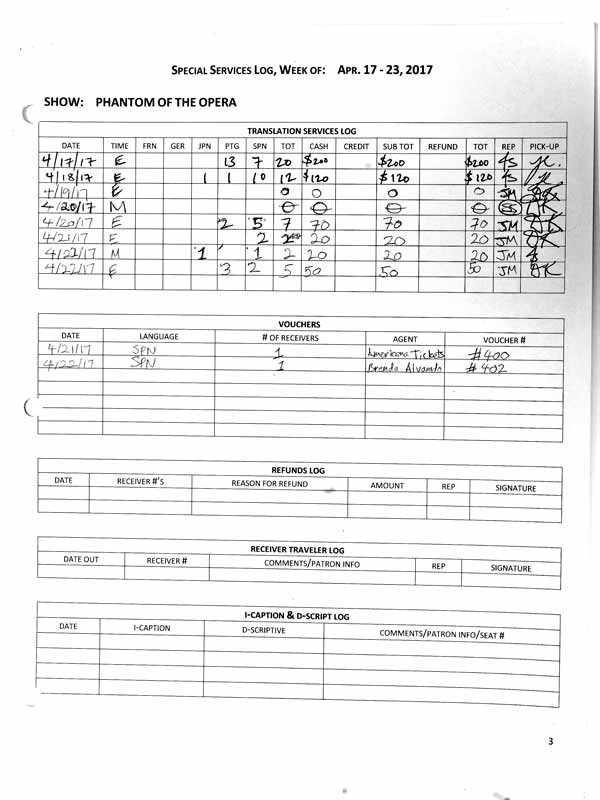 SPECIAL SERVICES LOG, WEEK OF: APR. 17 - 23, 2017
SHOW: PHANTOM OF THE OPERA
TRANSLATION SERVICES LOG
DATE TIME FRN GER JPN PTG SPN TOT CASH CREDIT SUB TOT REFUND TOT REP PICK-UP
4/17/17 E 13 7 20 $200 $200 $200 JS
4/18/17 E 1 1 10 12 $120 $120 $120 JS
4/19/17 E 0 0 0 0 JM
4/20/17 M 0 0 0 0
4/20/17 E 2 5 7 70 70 70 JM
4/21/17 E 2 2 20 20 20 JM
4/22/17 M 1 1 2 20 20 20 JM
4/22/17 E 3 2 5 50 50 50 JM
VOUCHERS
DATE LANGUAGE # OF RECEIVERS AGENT VOUCHER #
4/21/17 SPN 1 Americana Tickets #400
4/22/17 SPN 1 Brenda #402
REFUNDS LOG
DATE RECEIVER #'S REASON FOR REFUND AMOUNT REP SIGNATURE
RECEIVER TRAVELER LOG
DATE OUT RECEIVER # COMMENTS/PATRON INFO REP SIGNATURE
I-CAPTION & D-SCRIPT LOG
DATE I-CAPTION D-SCRIPTIVE COMMENTS/PATRON INFO/SEAT #
3